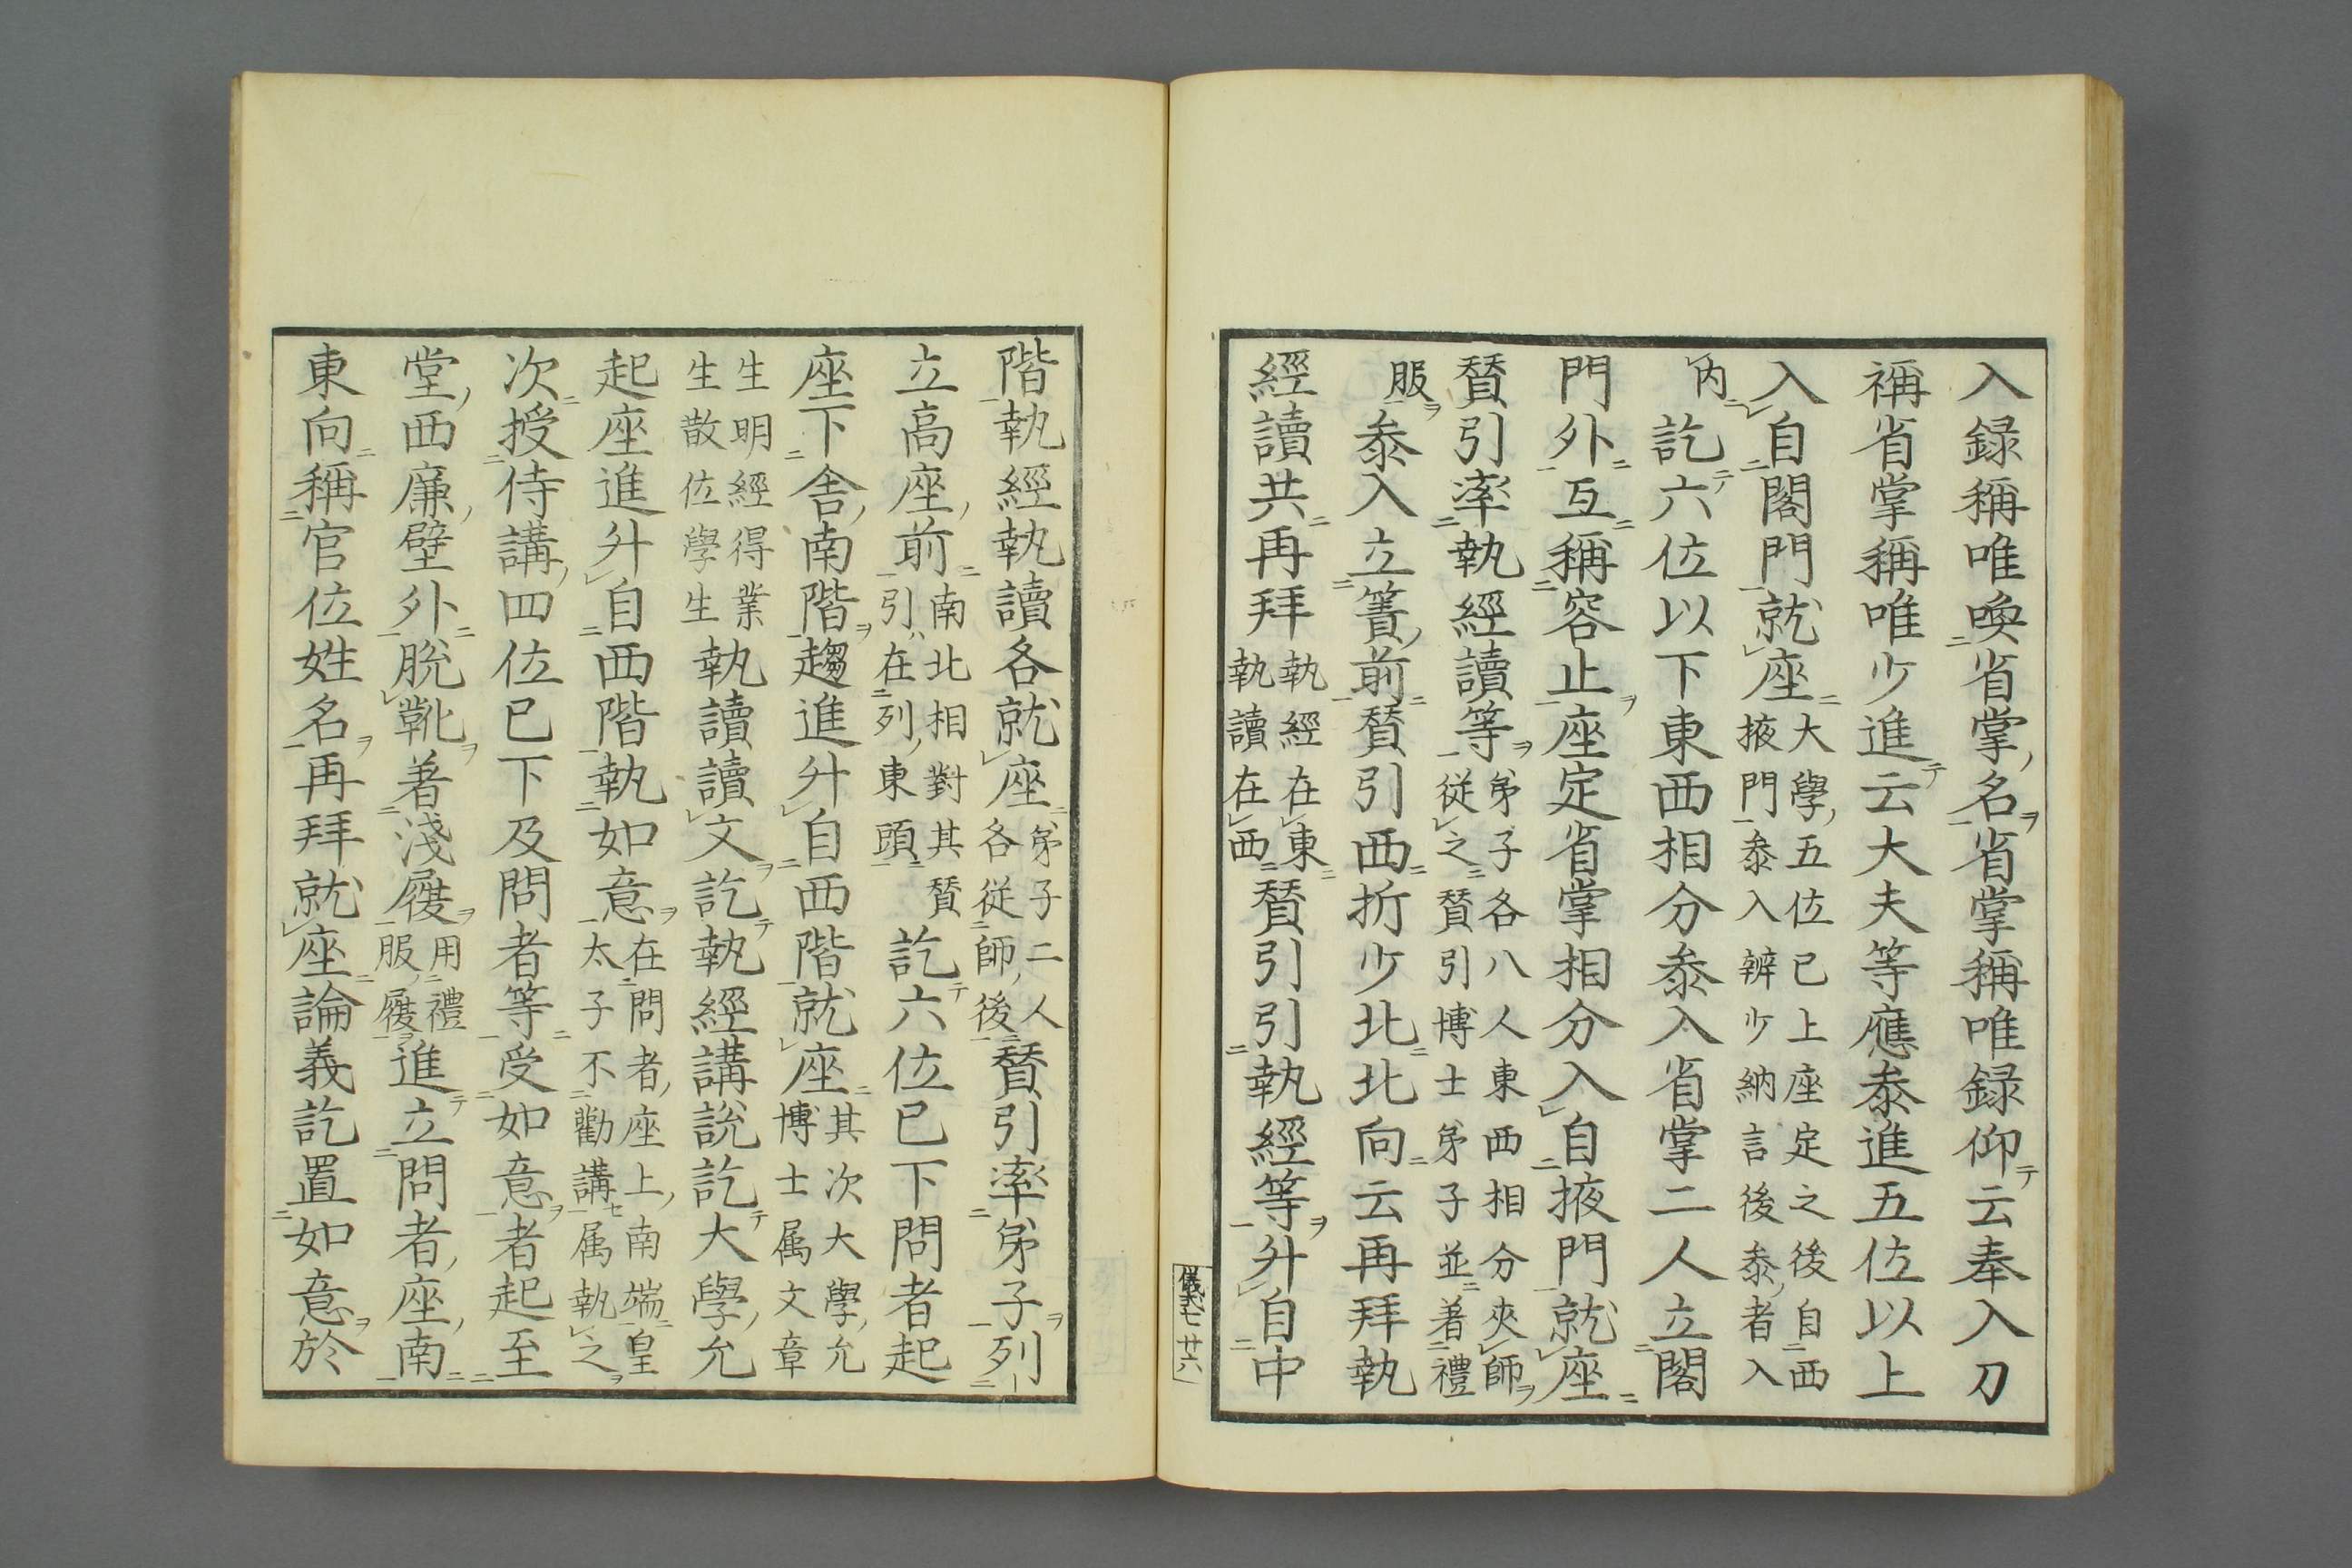 入録稱唯喚省掌名省掌稱唯録仰云奉入刀
禰省掌稱唯少進云大夫等應叅進五位以上
入自閤門就座大學五位已上座定之後自西掖門叅入辨少納言後叅者入
内訖六位以下東西相分叅入省掌二人立閤
門外互稱容止座定省掌相分入自掖門就座
賛引率執經讀等弟子各八人東西相分夾師従之賛引博士弟子並著禮
服叅入立簀前賛引西折少北北向云再拜執
經讀共再拜執經在東執讀在西賛引引執經等升自中
儀式七 廿六
階執經執讀各就座弟子二人各従師後賛引率弟子列
立高座前南北相對其賛引在列東頭訖六位已下問者起
座下舎南階趨進升自西階就座其次大學允博士属文章
生明經得業生散位學生執讀讀文訖執經講説訖大學允
起座進升自西階執如意在問者座上南端皇太子不勸講属執之
次授侍講四位已下及問者等受如意者起至
堂西廉壁外脱靴著淺履用禮服履進立問者座南
東向稱官位姓名再拜就座論義訖置如意於